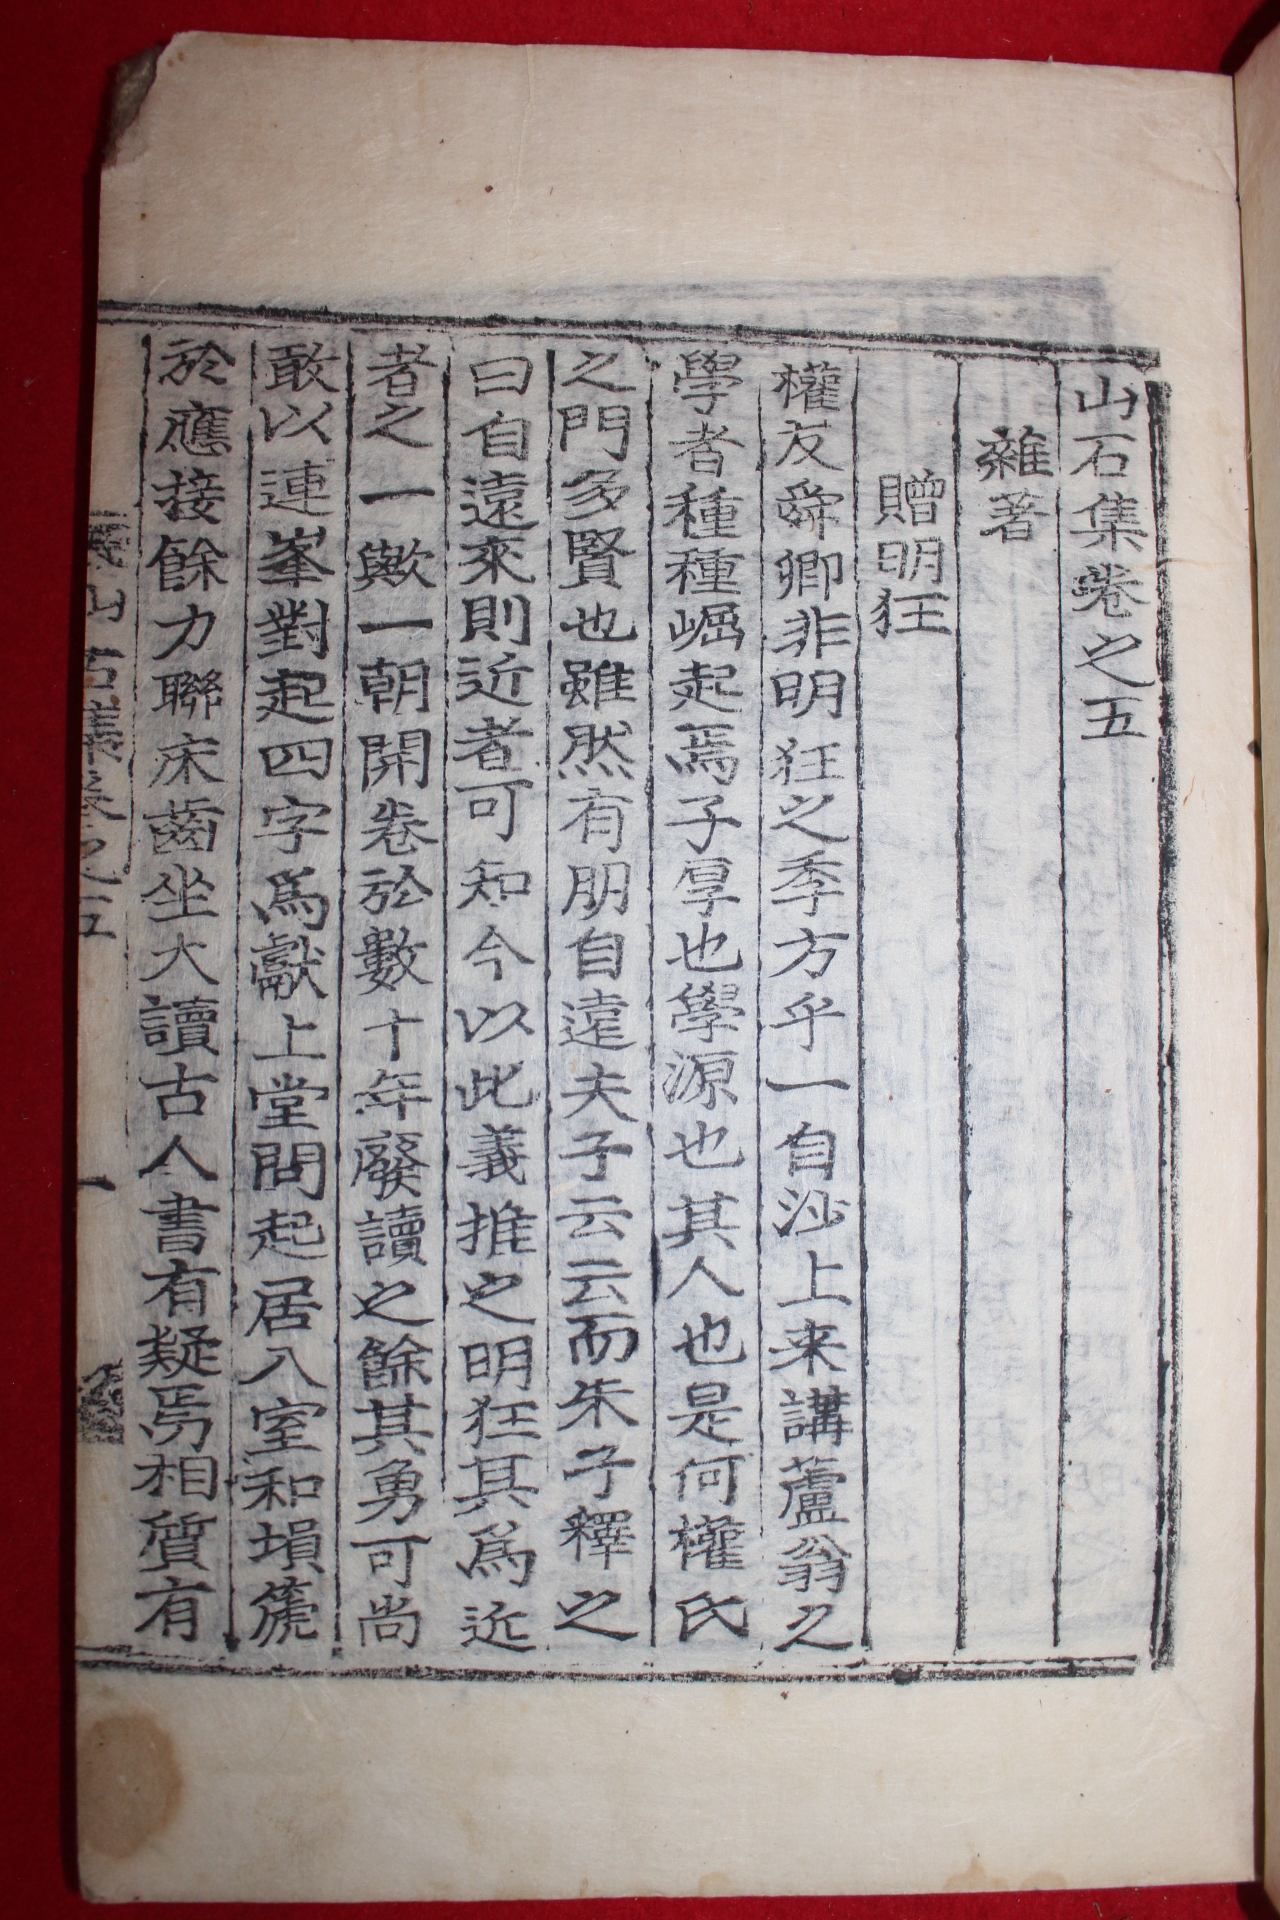 山石集卷之五
雜著
贈明狂
權友舜卿非明狂之季方乎一自沙上来講蘆翁之
學者種種崛起焉子厚也學源也其人也是何權氏
之門多賢也雖然有朋自遠夫子云云而朱子釋之
曰自遠來則近者可知今以此義推之明狂其爲近
者之一歟一朝開卷於數十年廢讀之餘其勇可尚
敢以連峯對起四字爲獻上堂問起居入室和塤篪
於應接餘力聯床齒坐大讀古人書有疑焉相質有
山石集卷之五
一